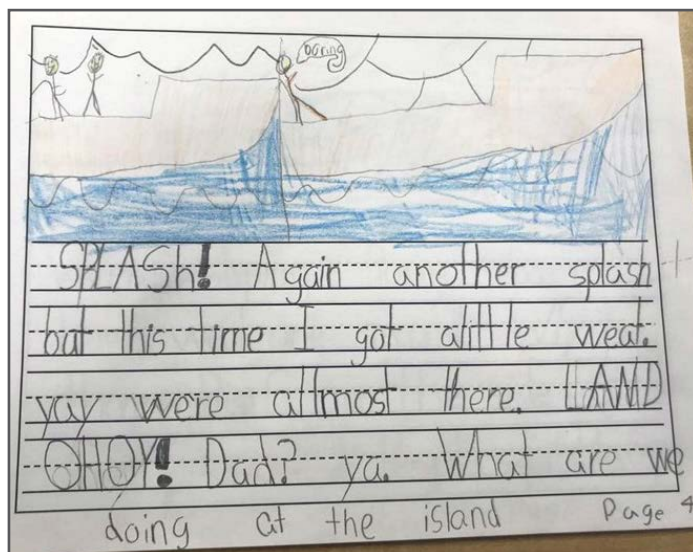 boring
SPLASh! Again another splash
but this time I got alittle weat.
yay were allmost there. LAND
OHOY! Dad? ya. What are we
doing at the island
Page 4